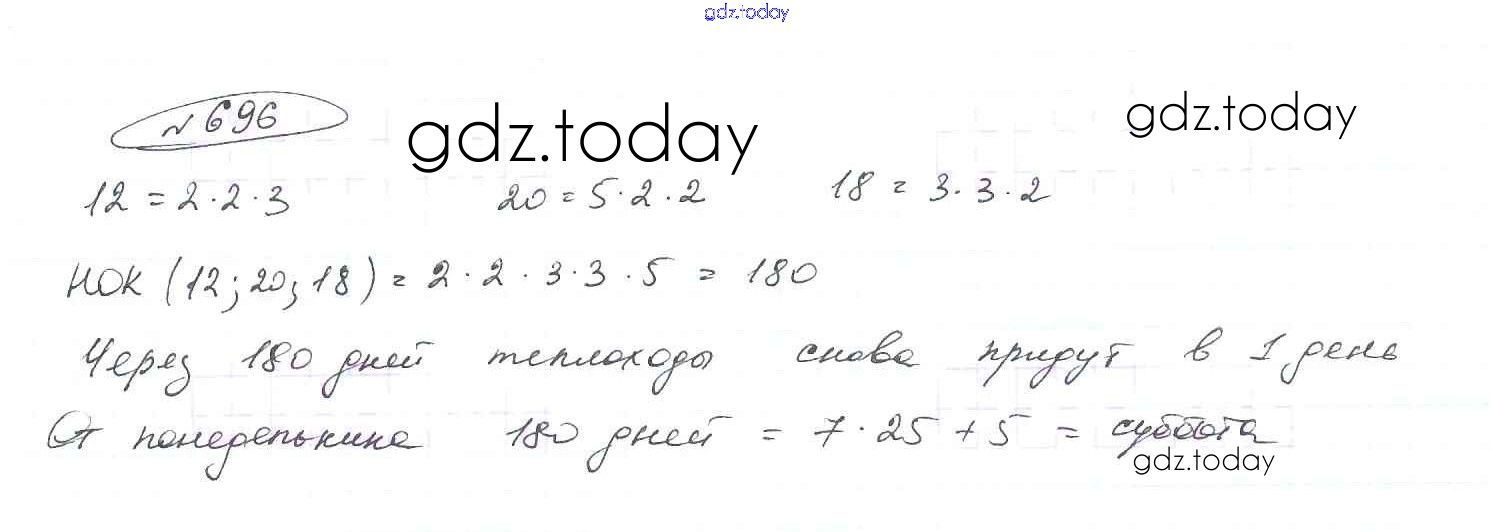 gdz.today
№ 696
gdz.today
gdz.today
12 = 2·2·3 20 = 5·2·2 18 = 3·3·2
НОК (12; 20; 18) = 2·2·3·3·5 = 180
Через 180 дней теплоходы снова придут в 1 день
От понедельника 180 дней = 7·25 + 5 = суббота
gdz.today